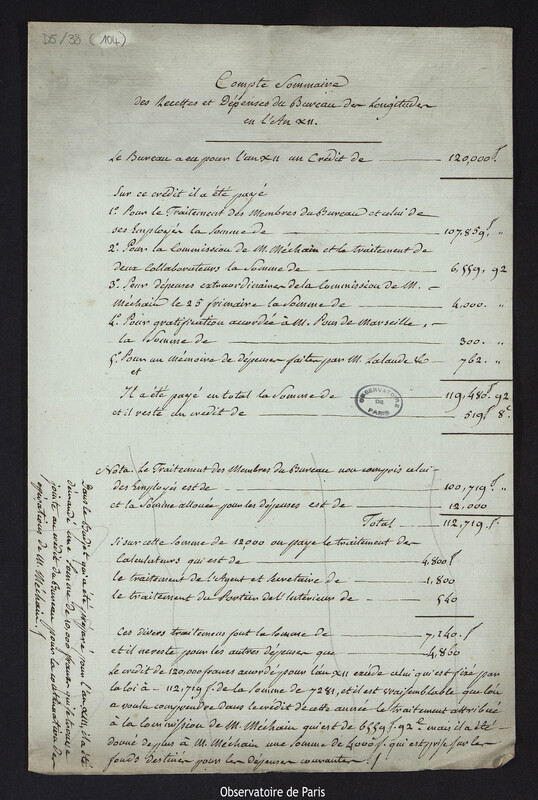 D5/38 (104)
Compte Sommaire
des Recettes et Dépenses du Bureau des Longitudes
en l'An XII.
Le Bureau a eu pour l'an XII un Crédit de 120,000 f
Sur ce crédit il a été payé
1.o Pour le Traitement des Membres du Bureau et celui de
ses Employés la Somme de 107,859 f "
2.o Pour la Commission de M. Méchain et le traitement de
deux Collaborateurs la Somme de 6,559, 92
3.o Pour dépenses extraordinaires de la Commission de M.
Méchain le 25 frimaire la Somme de 4,000. "
4.o Pour gratification accordée à M. Pons de Marseille,
la Somme de 300. "
5.o Pour un Mémoire de dépenses faites par M. Lalande &c 762. "
et
Il a été payé en total la Somme de 119,480 f 92
et il reste un crédit de 519 f 8 c
OBSERVATOIRE
DE
PARIS
Nota. Le Traitement des Membres du Bureau non compris celui
des Employés est de 100,719 f "
et la Somme allouée pour les dépenses est de 12,000
Total 112,719 f
Si sur cette Somme de 12,000 on paye le traitement des
Calculateurs qui est de 4,800 f
le traitement de l'Agent et Secretaire de 1,800
le traitement du Portier de l'Intérieur de 540
Ces divers traitemens font la Somme de 7,140 f
et il ne reste pour les autres dépenses que 4,860
Le crédit de 120,000 francs accordé pour l'an XII excède celui qui est fixé par
la loi à 112,719 f. de la somme de 7281, et il est vraisemblable que l'on
a voulu comprendre dans le crédit de cette année le traitement attribué
à la Commission de M. Méchain qui est de 6559 f 92 c mais il a été
donné de plus à M. Méchain une somme de 4000 f. qui est prise sur les
fonds destinés pour les dépenses courantes.
Dans le Budjet qui a été préparé pour l'an XIII, il a été
demandé une Somme de 10,000 francs qui se trouve
jointe au crédit du Bureau pour la continuation des
opérations de M. Méchain.
Observatoire de Paris